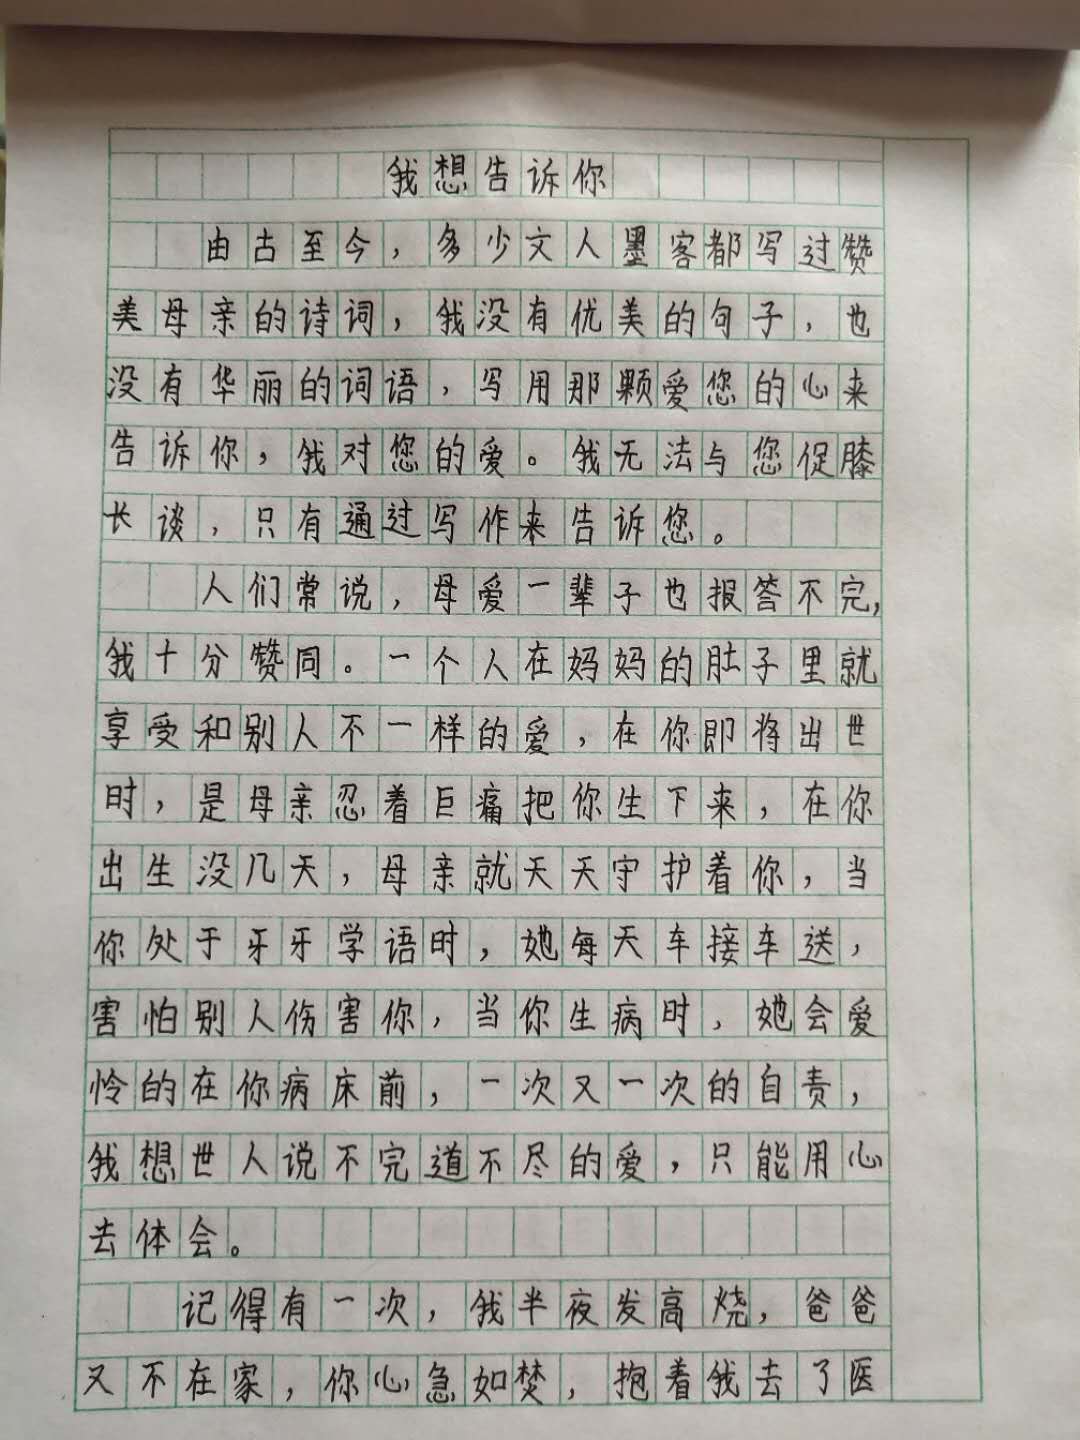 我想告诉你
由古至今，多少文人墨客都写过赞
美母亲的诗词，我没有优美的句子，也
没有华丽的词语，写用那颗爱您的心来
告诉你，我对您的爱。我无法与您促膝
长谈，只有通过写作来告诉您。
人们常说，母爱一辈子也报答不完，
我十分赞同。一个人在妈妈的肚子里就
享受和别人不一样的爱，在你即将出世
时，是母亲忍着巨痛把你生下来，在你
出生没几天，母亲就天天守护着你，当
你处于牙牙学语时，她每天车接车送，
害怕别人伤害你，当你生病时，她会爱
怜的在你病床前，一次又一次的自责，
我想世人说不完道不尽的爱，只能用心
去体会。
记得有一次，我半夜发高烧，爸爸
又不在家，你心急如焚，抱着我去了医